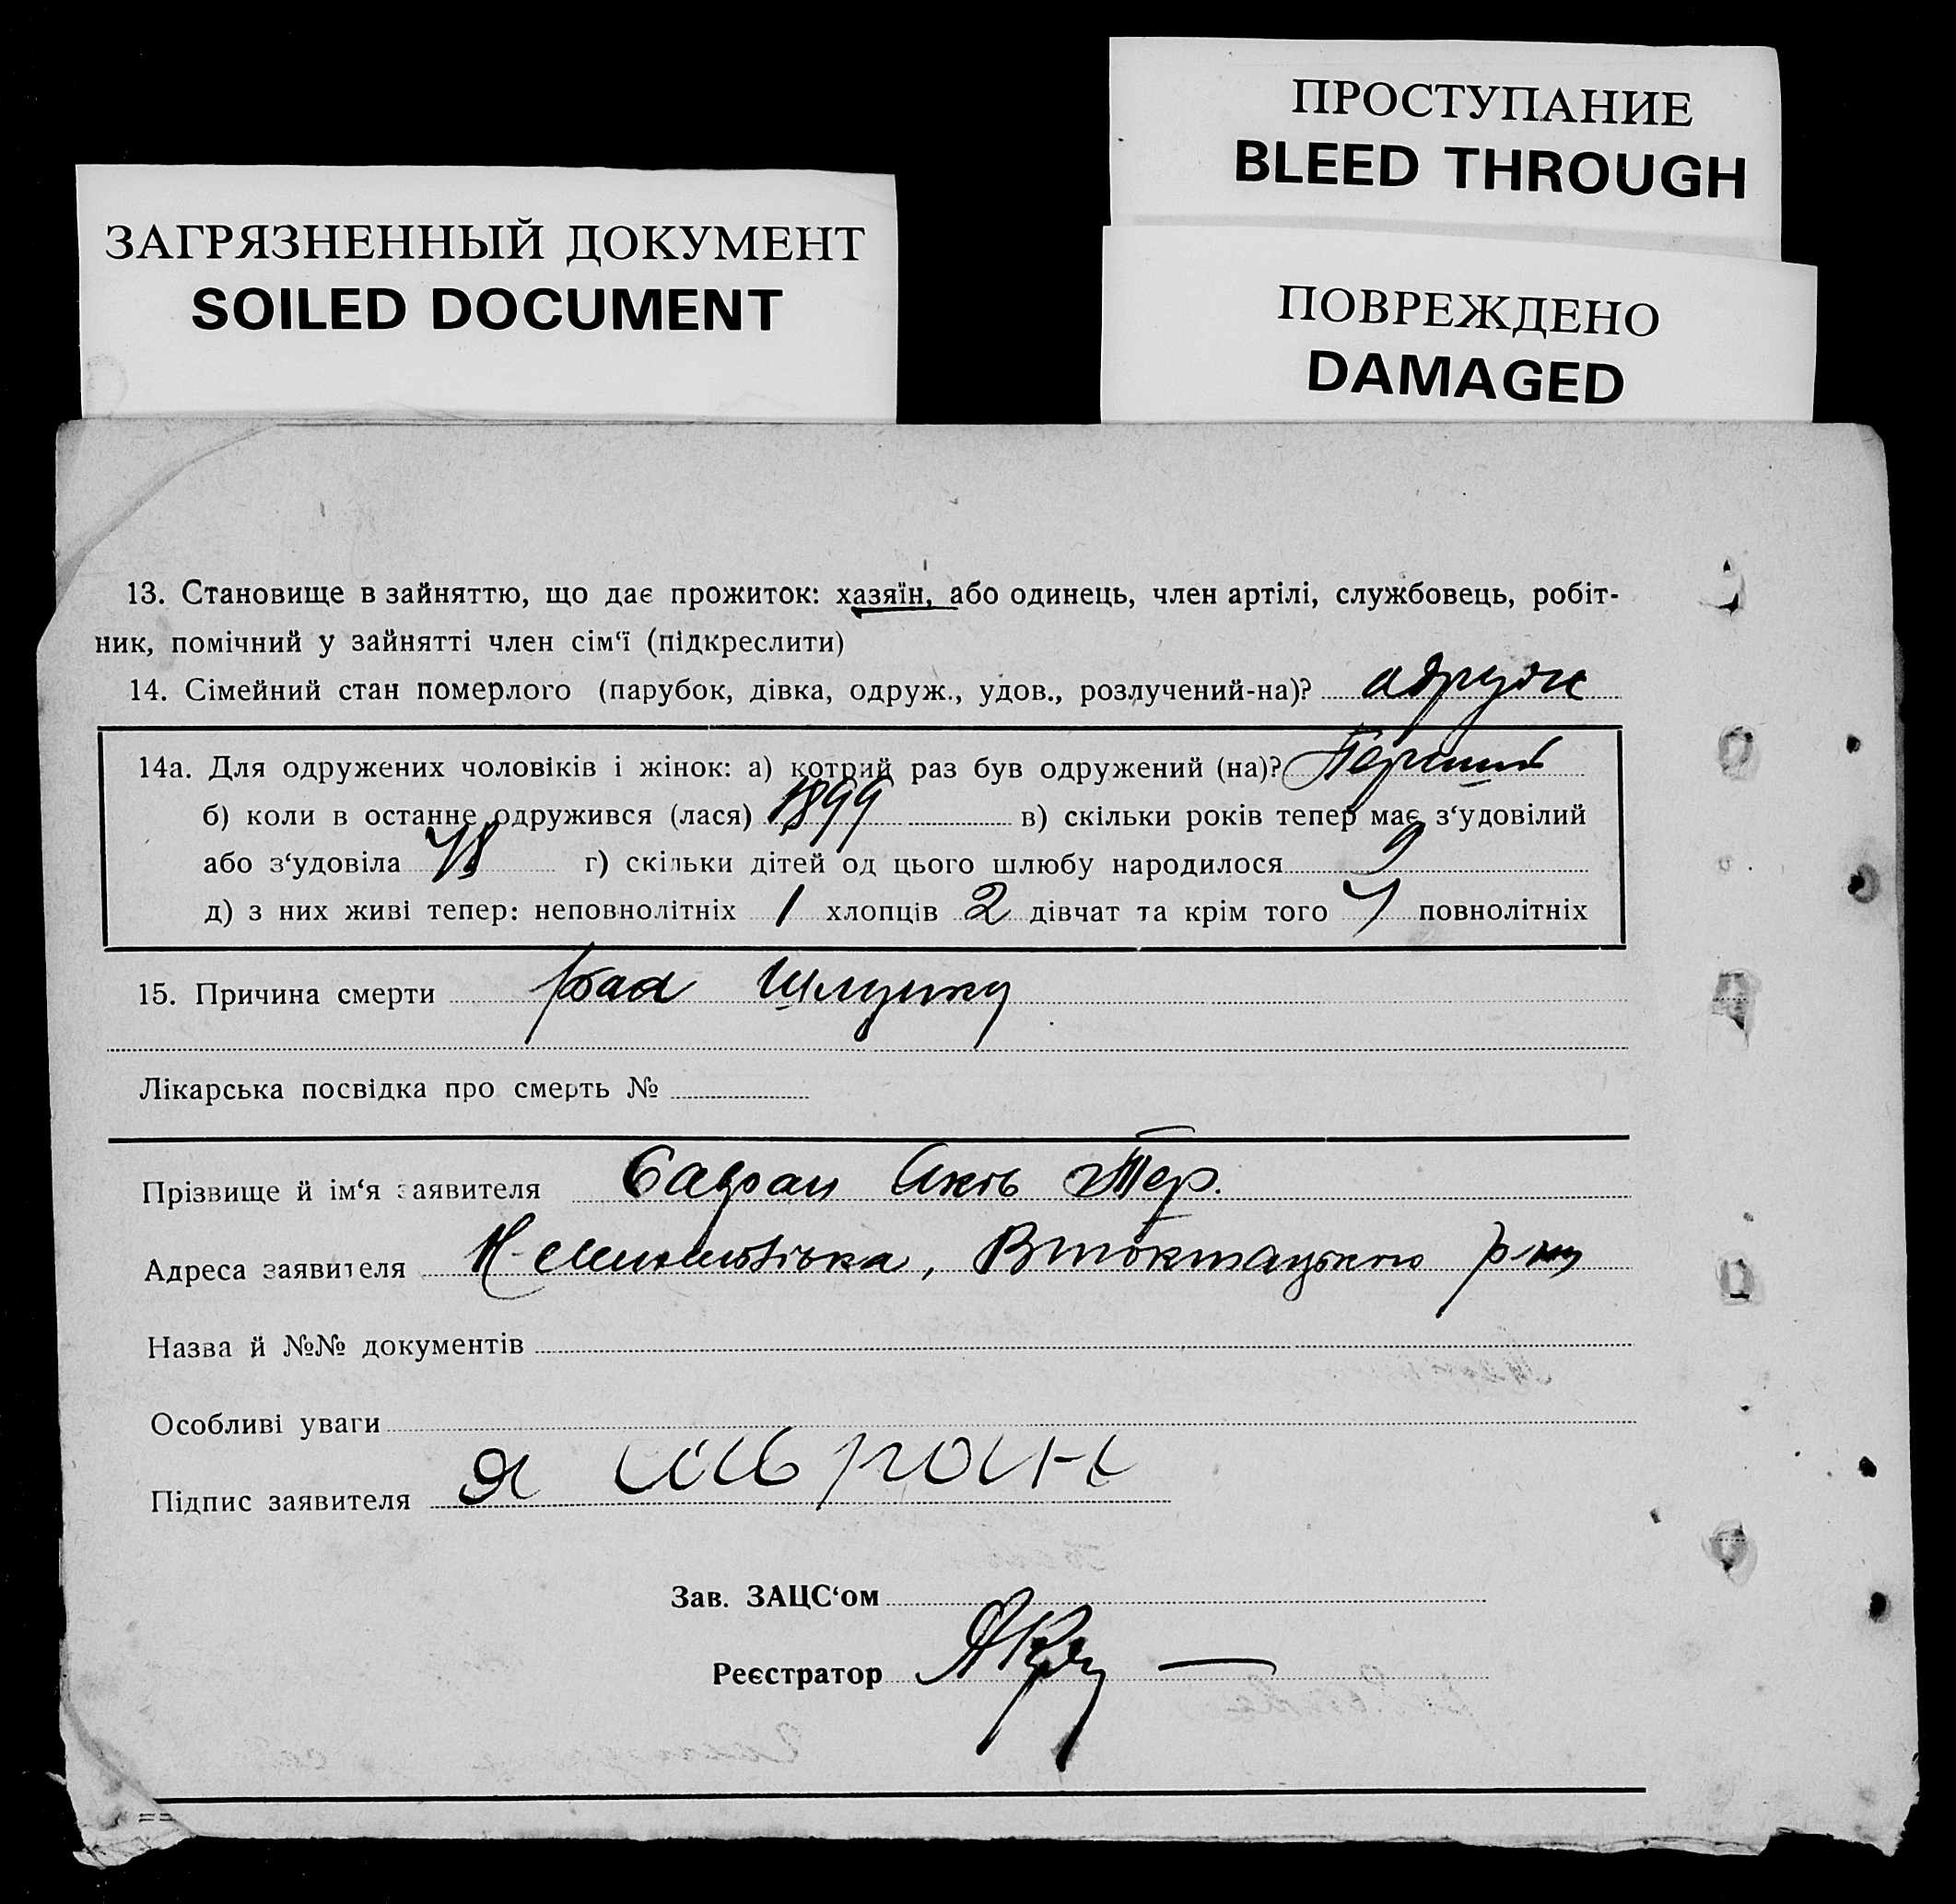 ПРОСТУПАНИЕ
BLEED THROUGH
ЗАГРЯЗНЕННЫЙ ДОКУМЕНТ
SOILED DOCUMENT
ПОВРЕЖДЕНО
DAMAGED
13. Становище в зайняттю, що дає прожиток: хазяїн, або одинець, член артілі, службовець, робіт-
ник, помічний у зайнятті член сім‘ї (підкреслити)
14. Сімейний стан померлого (парубок, дівка, одруж., удов., розлучений-на)? одруж
14а. Для одружених чоловіків і жінок: а) котрий раз був одружений (на)? Перший
б) коли в останне одружився (лася) 1899 в) скільки років тепер має з‘удовілий
або з‘удовіла г) скільки дітей од цього шлюбу народилося 9
д) з них живі тепер: неповнолітніх 1 хлопців 2 дівчат та крім того повнолітніх
15. Причина смерти рак шлунку
Лікарська посвідка про смерть №
Прізвище й ім‘я заявителя Савран Яків
Адреса заявителя
Назва й №№ документів
Особливі уваги
Підпис заявителя Я Савран
Зав. ЗАЦС‘ом
Реєстратор